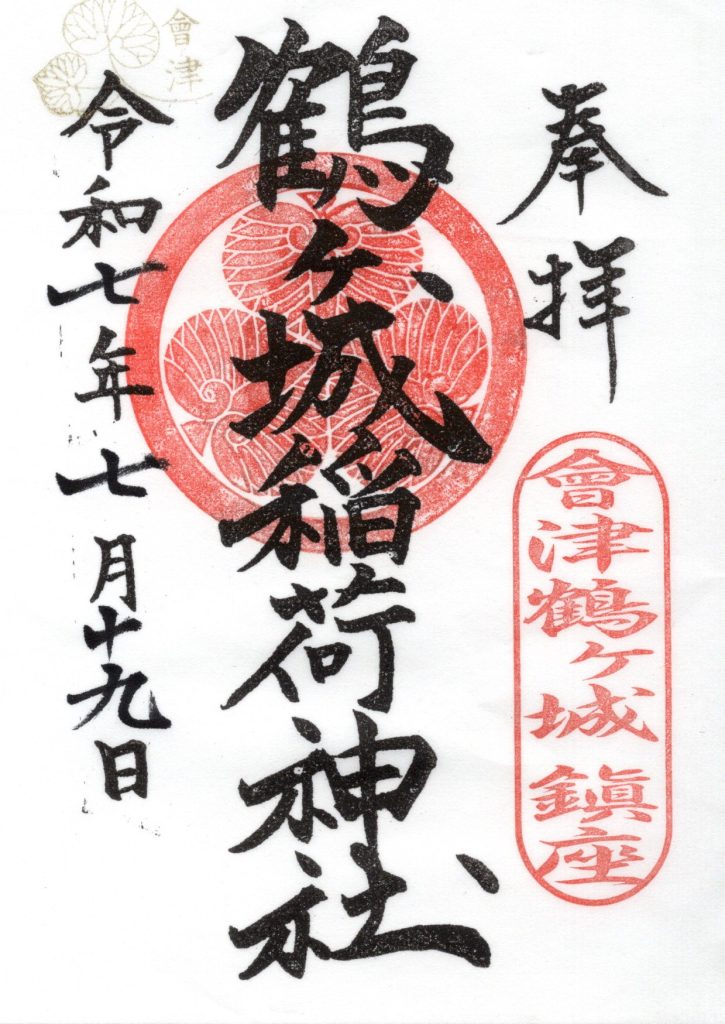 奉拝
會津鶴ヶ城鎮座
鶴ヶ城稲荷神社
令和七年七月十九日
會津